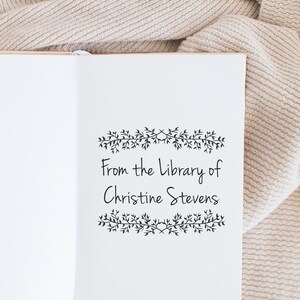 From the Library of
Christine Stevens